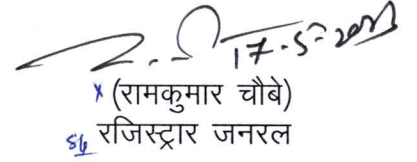 17.5.2023
x (रामकुमार चौबे)
रजिस्ट्रार जनरल